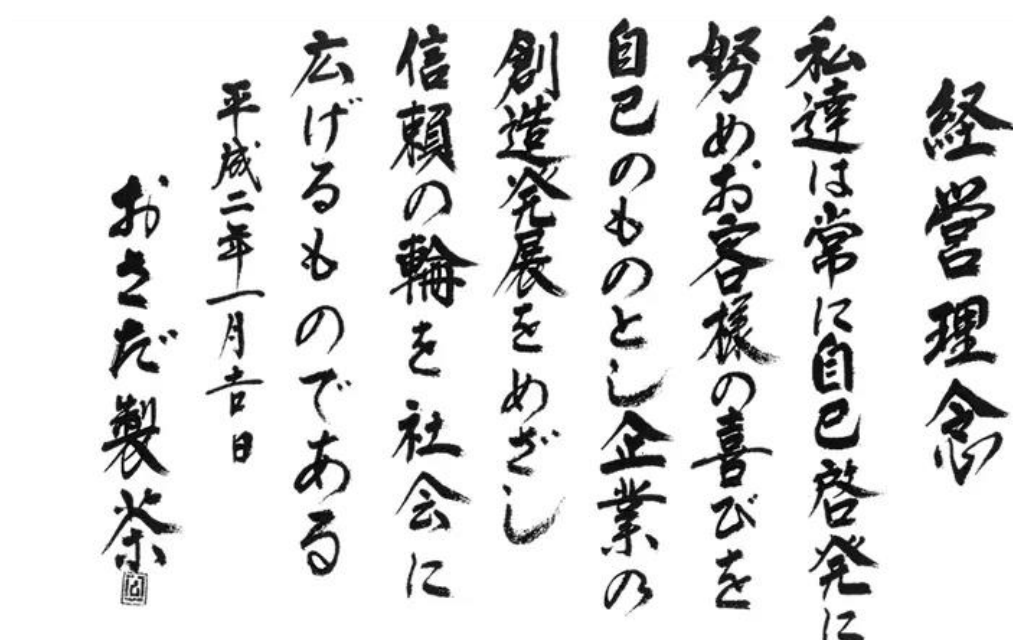 経営理念
私達は常に自己啓発に
努めお客様の喜びを
自己のものとし企業の
創造発展をめざし
信頼の輪を社会に
広げるものである
平成二年一月吉日
おさだ製茶